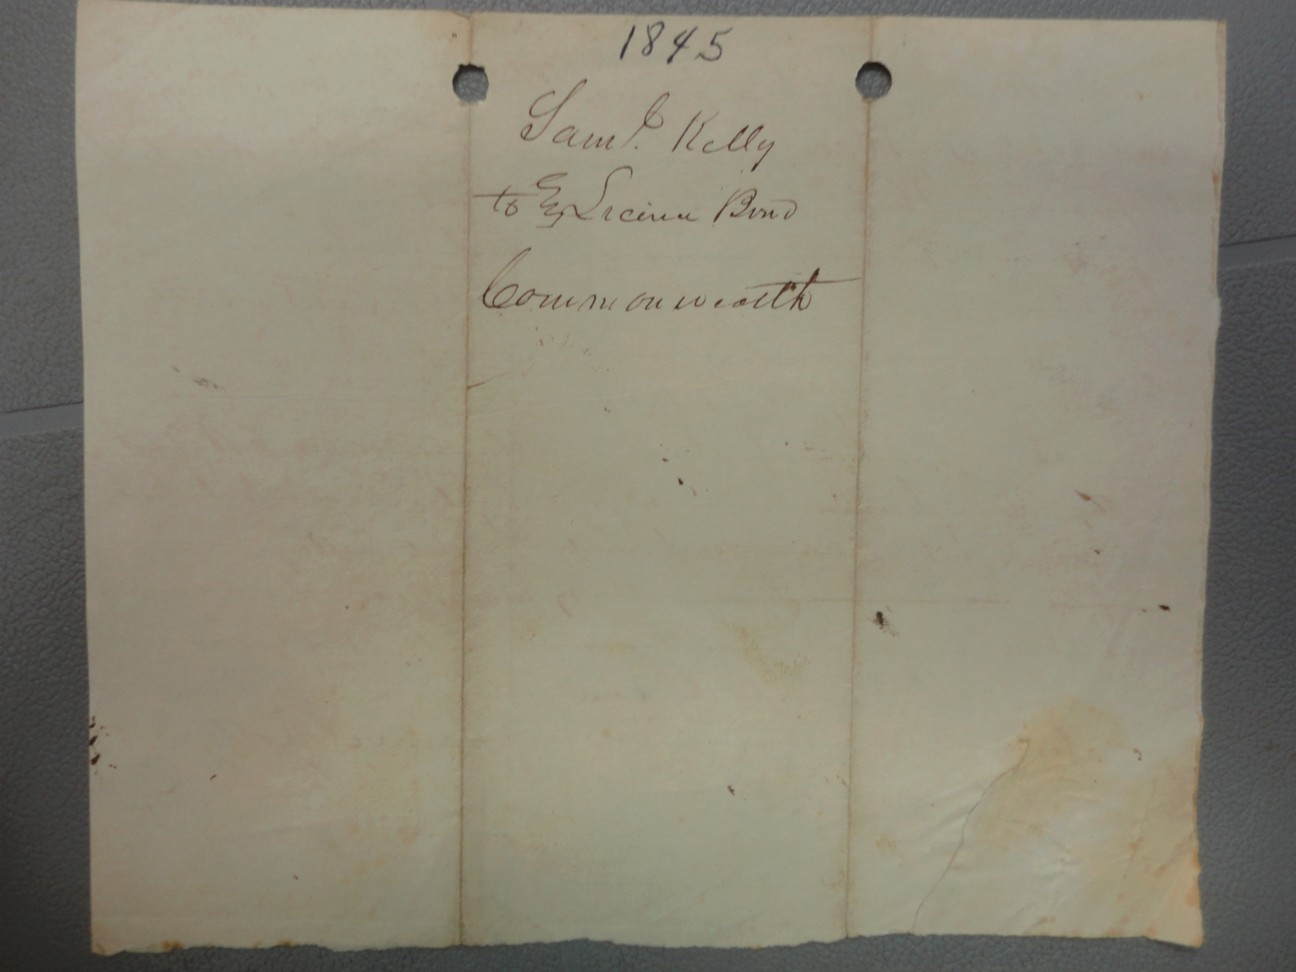 1845
Saml. Kelly
to } License Bond
Commonwealth